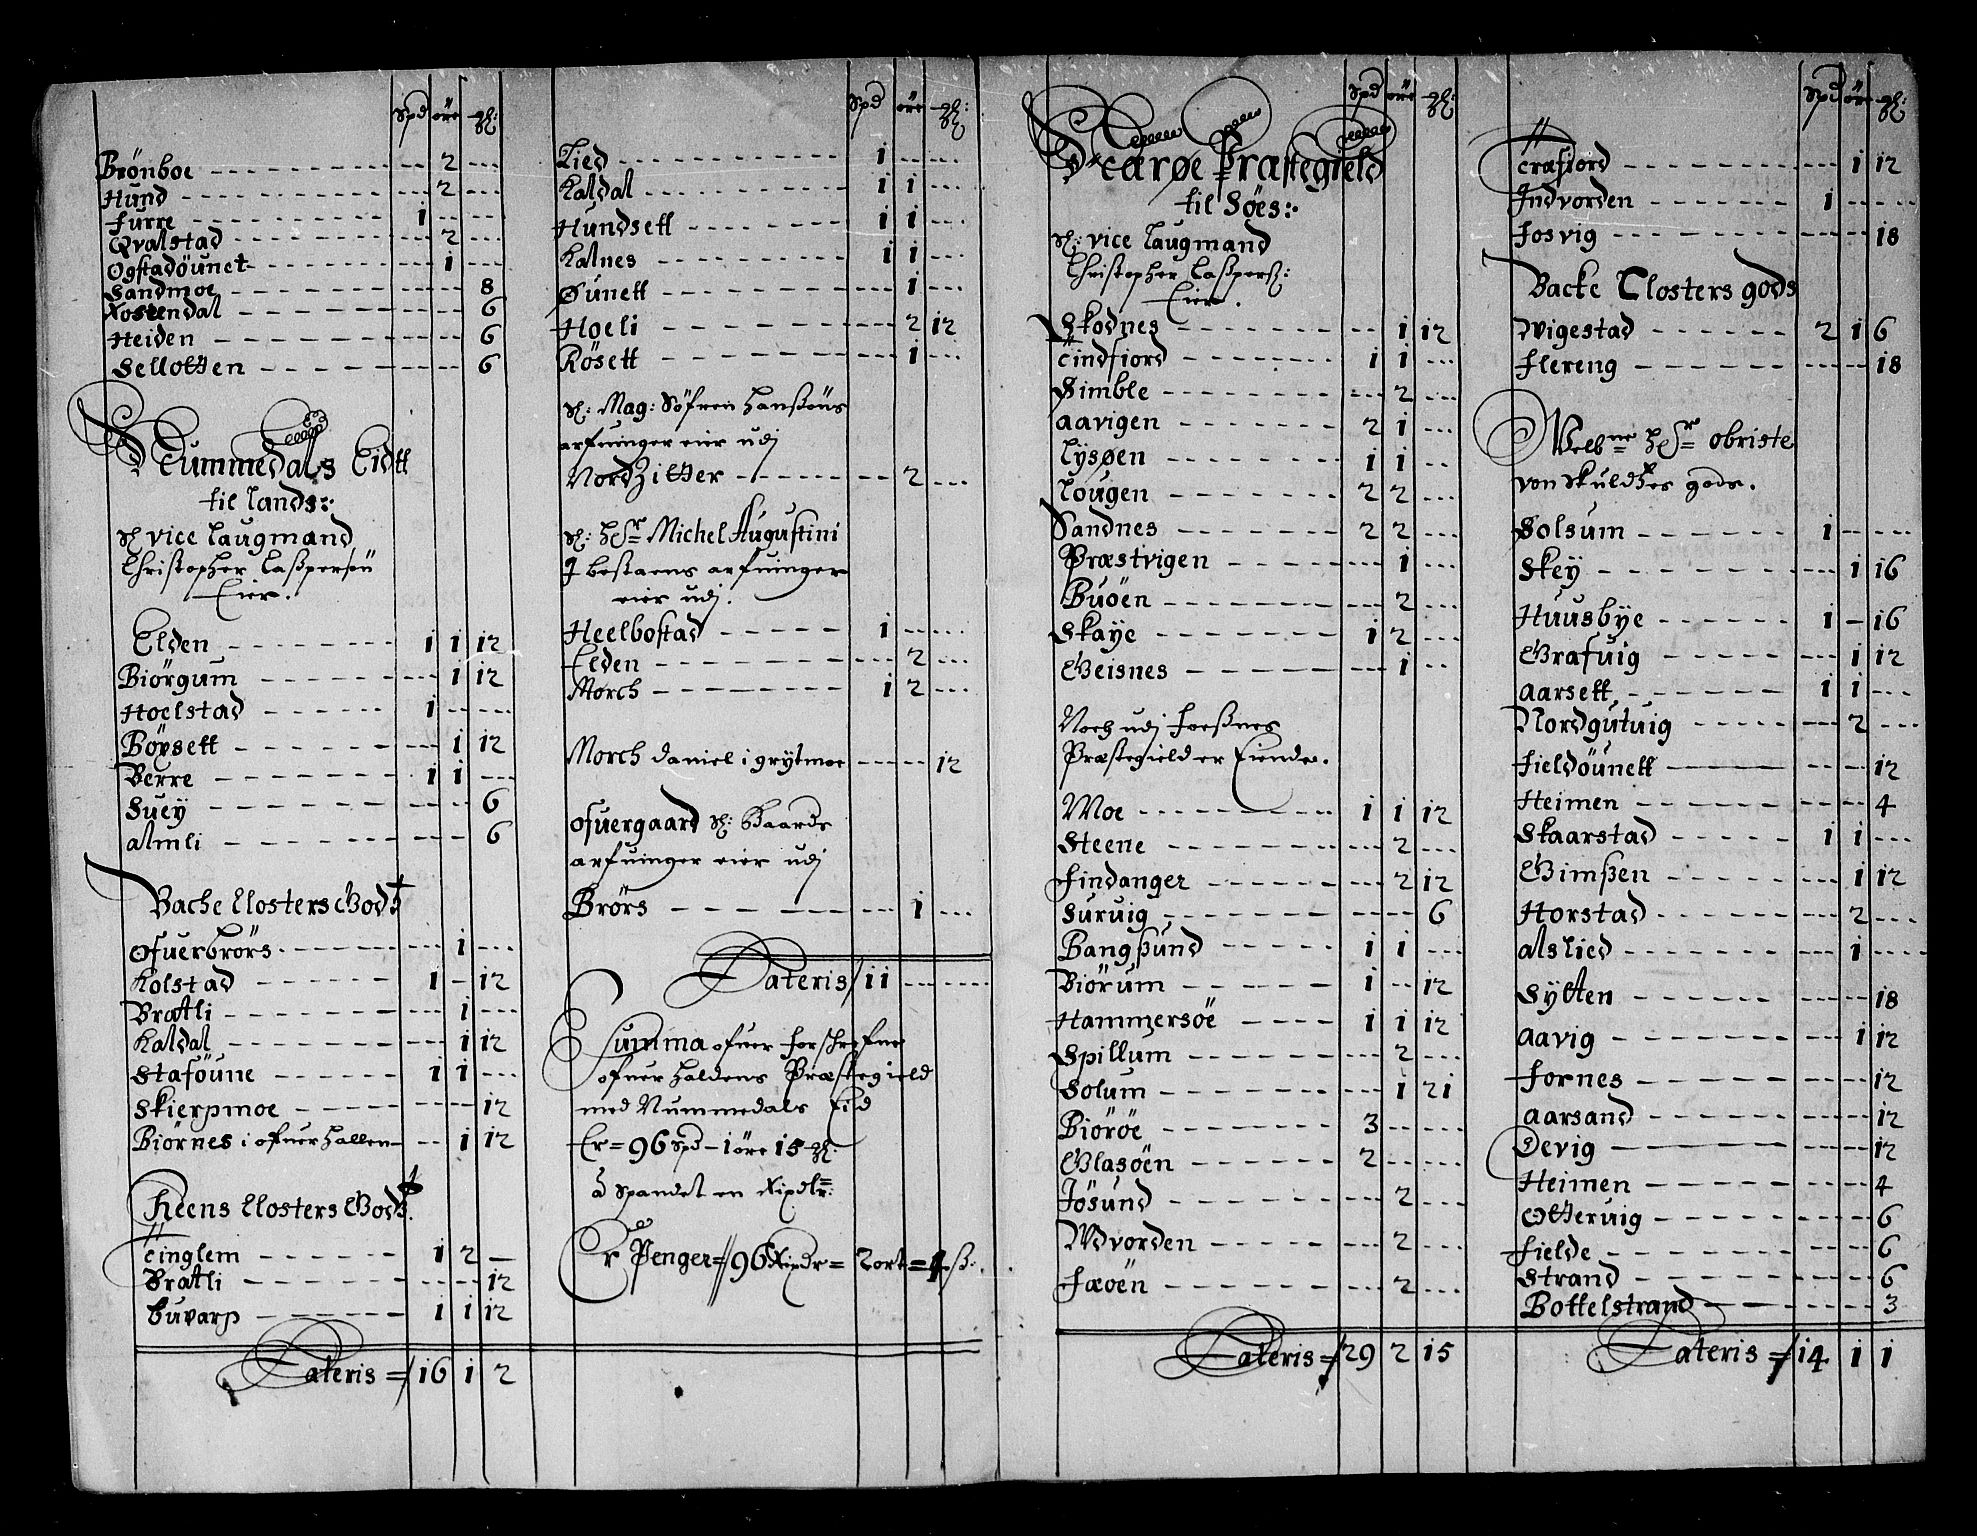 Spd öre gl:
Brönboe - - - 2 - - -
Hund - - - 2 - - -
Furre - - - 1 - - -
Qvalstad - - - 2 - - -
Ogstadöunet - - - 1 - - -
Sandmoe - - - 8
Rostendal - - - 6
Heiden - - - 6
Sellotten - - - 6
Nummedals Eidtt
til lands:
Sl vice Laugmand
Christopher Caßpersön
Eier.
Elden - - - 1 1 12
Biörgum - - - 1 12
Hoelstad - - - 1 - - -
Böysett - - - 1 12
Berre - - - 1 1 - - -
Suey - - - 6
Almli - - - 6
Bache Closters Godß
Ofuerbrörs - - - 1 - - -
Kolstad - - - 1 - 12
Bratli - - - 1 - - -
Kaldal - - - 1 12
Staföune - - - 1 1 - - -
Skierpmoe - - - 12
Biörnes i ofuerhallen - - - 1 12
Reens Closters Godß.
Tinglem - - - 1 2 -
Bratli - - - 12
Buvarp - - - 1 1 12
Lateris = 16 1 2
Spd öre gl:
Lied - - - 1 - - -
Kaldal - - - 1 1 - - -
Hundsett - - - 1 1 - - -
Kalnes - - - 1 1 - - -
Øunett - - - 1 - - -
Hoeli - - - 2 12
Rösett - - - 1 - - -
Sl: Mag: Söfren Hanßöns
arfuinger eier udj
Nord Zitter - - - 2 - - -
Sl: Hr Michel Augustini
J bestaens arfuinger
eier udj.
Heelbostad - - - 1 - - -
Elden - - - 2 - - -
Morch - - - 1 2 - - -
Morch daniel i grytmoe - - - 12
Ofuergaard Sl: Baards
arfuinger eier udj
Brörs - - - 1 - - -
Lateris / 11 - - -
Summa ofuer forschrefne
ofuerhaldens Præstegield
med Nummedals Eid
Er = 96 Spd - 1 öre 15 gl:
à Spandet en Rixdlr:
Er Penger = 96 Rixdr = 2 ort = 4 ß.
Spd öre gl:
Næröe Præstegield
til Söes:
Sl: vice Laugmand
Christopher Caßperß:
Eier.
Skodnes - - - 1 12
Tindfiord - - - 1 1 - - -
Simble - - - 2 - - -
Aavigen - - - 2 1 - - -
Lysøen - - - 1 1 - - -
Lougen - - - 2 2 - - -
Sandnes - - - 2 2 - - -
Præstvigen - - - 1 - - -
Buöen - - - 2 - - -
Skaye - - - 1 2 - - -
Geisnes - - - 1 - - -
Noch udj Foeßnes
Præstegield er Eiendes.
Moe - - - 1 1 12
Steene - - - 2 - - -
Findanger - - - 2 12
Suruig - - - 6
Bangßund - - - 1 1 - - -
Biörum - - - 1 - - 12
Hammersöe - - - 1 1 12
Spillum - - - 2 - - -
Solum - - - 1 21
Biöröe - - - 3 - - -
Glasöen - - - 2 - - -
Jösund - - - 2 - - -
Udvorden - - - 2 - - -
Faöen - - - 2 - - -
Lateris = 29 2 15
Spd öre gl:
Træfiord - - - 1 12
Indvorden - - - 1 - - -
Fosvig - - - 18
Backe Closters gods
Wigestad - - - 2 1 6
Flereng - - - 18
Welbne Hr Obriste
von Skuldßes gods.
Solsum - - - 1 - - -
Skey - - - 1 16
Huusbye - - - 1 - 16
Grafuig - - - 1 12
Aarsett - - - 1 1 - - -
Nordgutuig - - - 2 - - -
Fieldöunett - - - 12
Heimen - - - 4
Skaarstad - - - 1 1 - - -
Gimßen - - - 1 12
Horstad - - - 2 - - -
Alslied - - - 1 - - -
Sytten - - - 18
Aavig - - - 1 12
Fornes - - - 12
Aarsand - - - 12
Devig - - - 12
Heimen - - - 4
Otteruig - - - 6
Fielde - - - 6
Strand - - - 6
Bottelstrand - - - 3
Lateris = 14 1 1